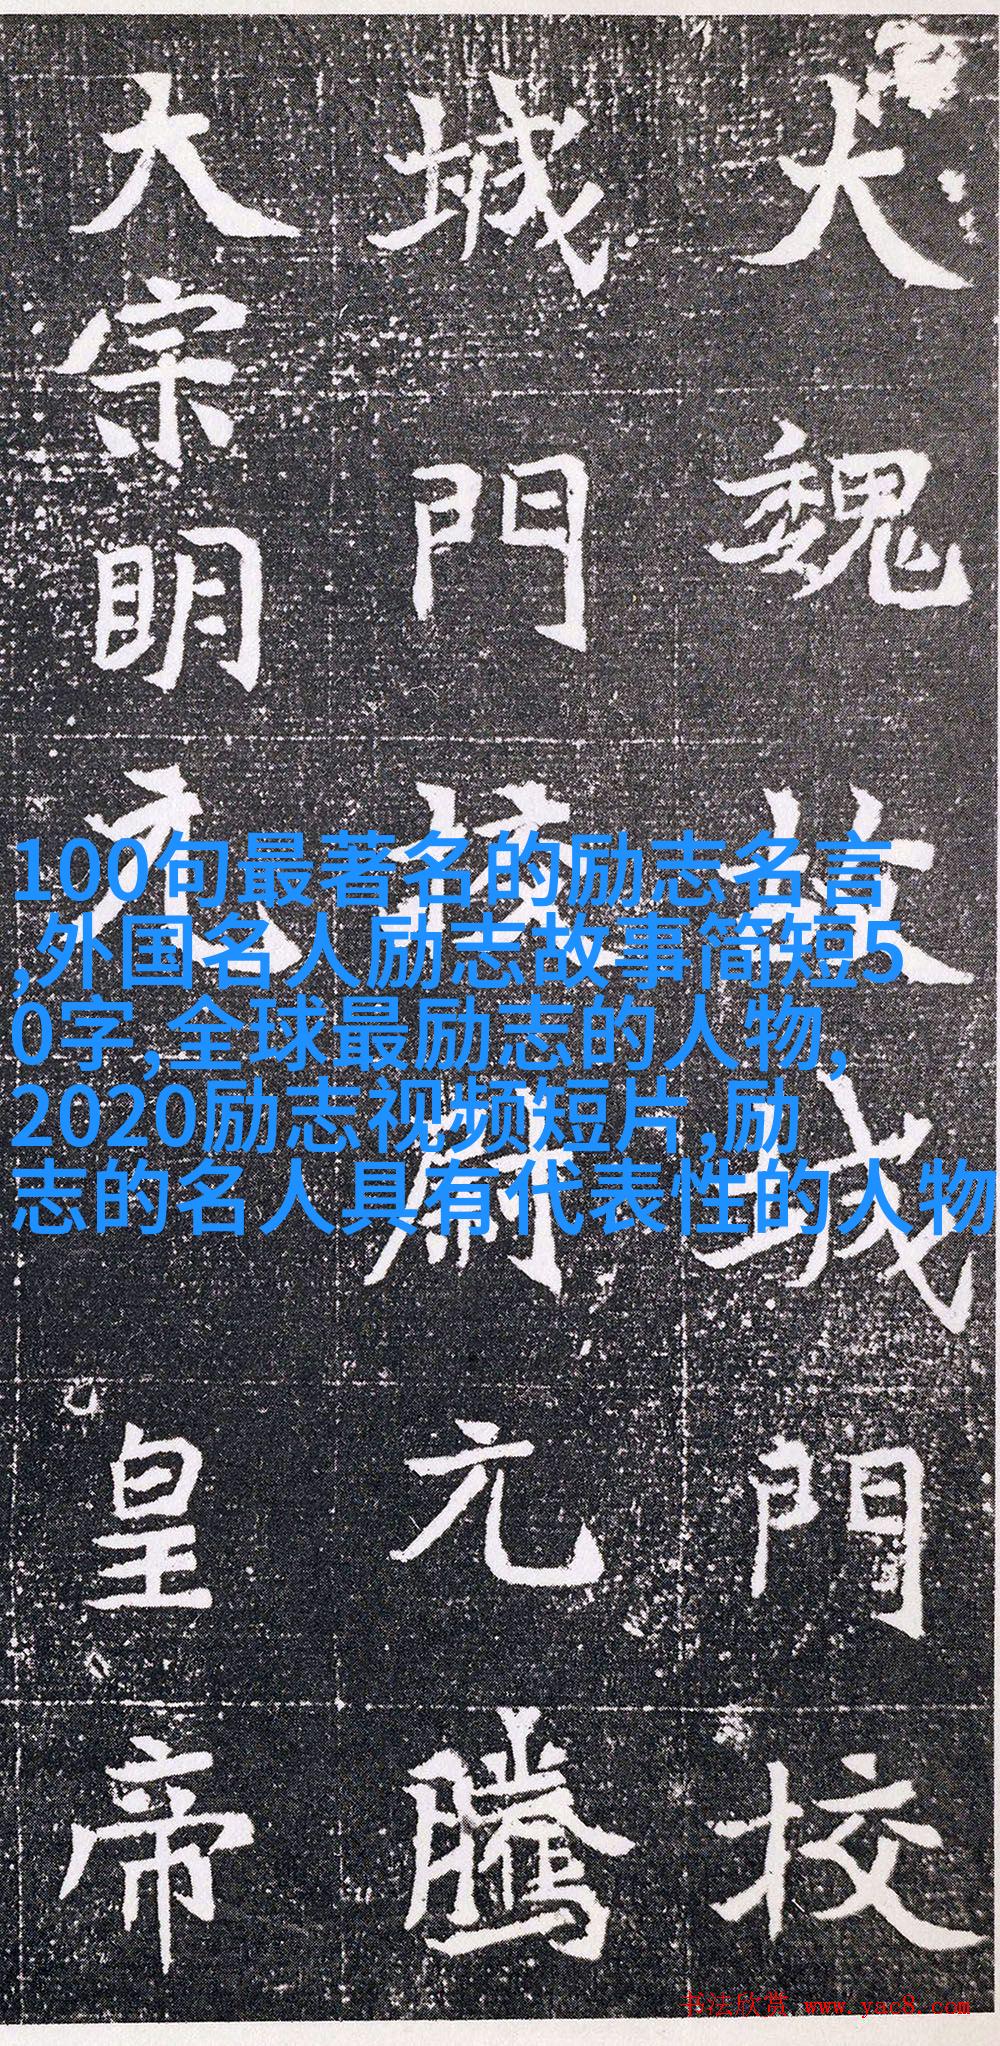 大魏故城門校
城門校尉元騰
大宗明元皇帝
100句最著名的励志名言
,外国名人励志故事简短5
0字,全球最励志的人物,
2020励志视频短片,励
志的名人具有代表性的人物
书法欣赏 www.yac8.com